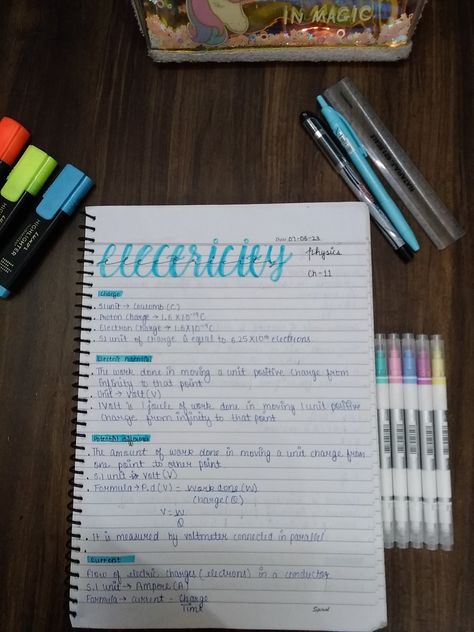 IN MAGIC
HIGHLIGHTER
HIGHLIGHTER
Date 07-08-23
electricity
physics
Ch-11
Charge
. SI unit → Coulomb (C)
. Proton Charge → 1.6 × 10⁻¹⁹ C
. Electron Charge → 1.6 × 10⁻¹⁹ C
. SI unit of charge is equal to 6.25 × 10¹⁸ electrons.
Electric Potential
. The work done in moving a unit positive charge from
infinity to that point
. Unit → Volt (V)
. 1 Volt is 1 joule of work done in moving 1 unit positive
charge from infinity to that point
Potential difference
. The amount of work done in moving a unit charge from
one point to other point
. S.I unit → Volt (V)
. Formula → P.d (V) = Work done (W)
Charge (Q)
V = W
Q
. It is measured by voltmeter connected in parallel
Current
Flow of electric charges (electrons) in a conductor
S.I unit → Ampere (A)
Formula → Current = Charge
Time
Spiral